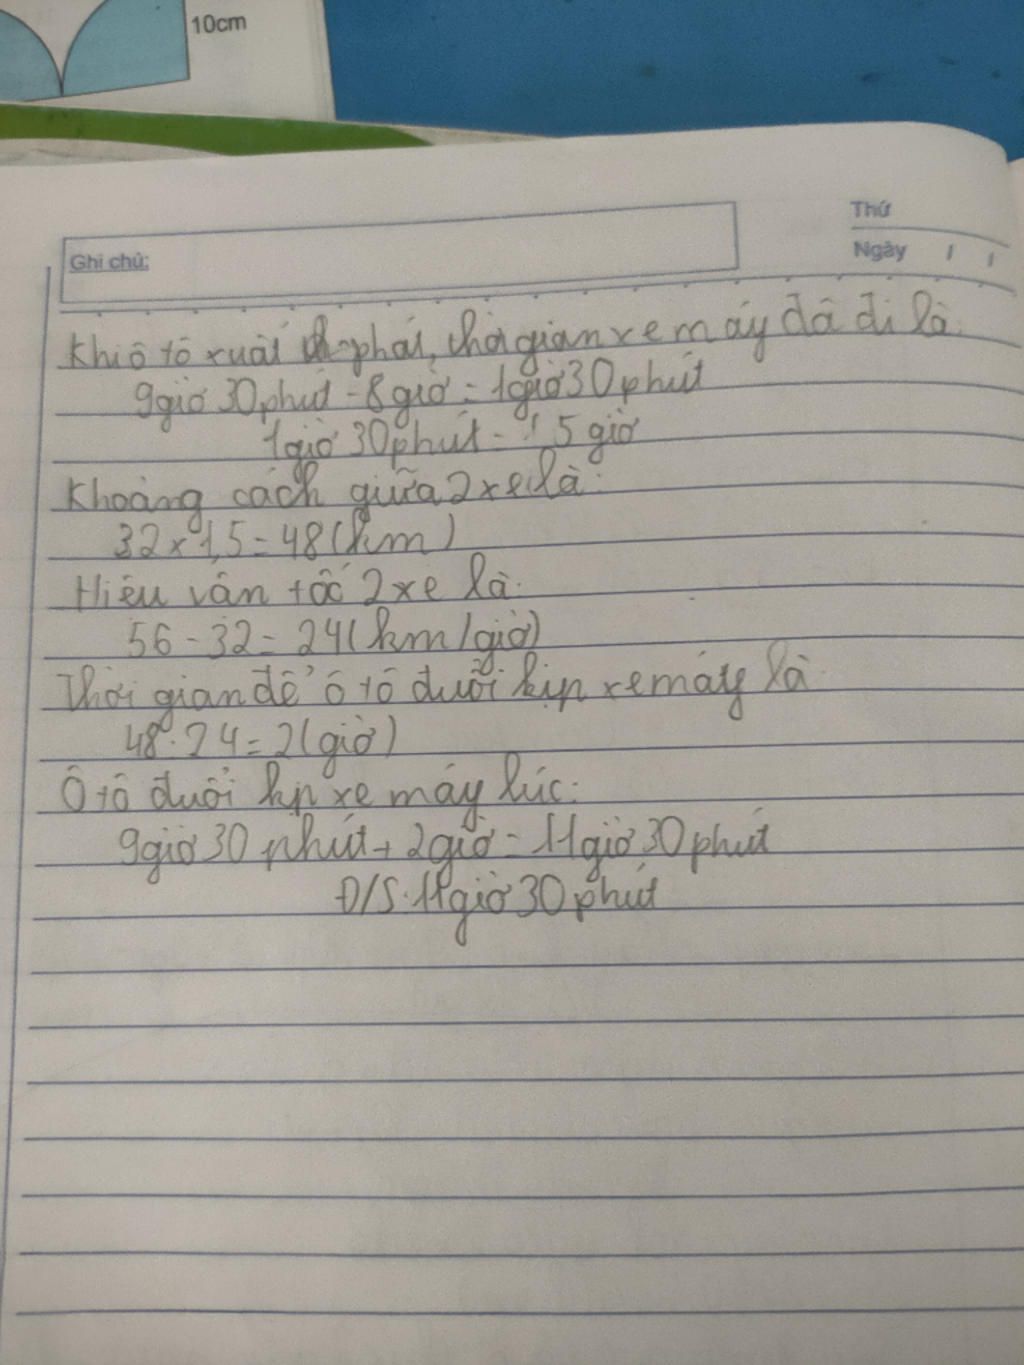 10cm
Thứ
Ghi chú:
Ngày / /
Khi ô tô xuất phát, thời gian xe máy đã đi là:
9giờ 30phút - 8giờ = 1giờ30phút
1giờ 30phút = 1,5 giờ
Khoảng cách giữa 2xe là:
32 x 1,5 = 48 (km)
Hiệu vận tốc 2xe là:
56 - 32 = 24 (km/giờ)
Thời gian để ô tô đuổi kịp xe máy là
48 : 24 = 2 (giờ)
Ô tô đuổi kịp xe máy lúc:
9giờ 30 phút + 2giờ = 11giờ 30phút
Đ/S: 11giờ 30phút